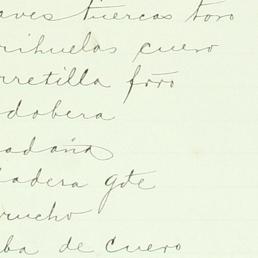 aves tuercas toro
rihuelas cuero
rretilla forro
dobera
adaña
ladera gde
rucho
ba de cuero